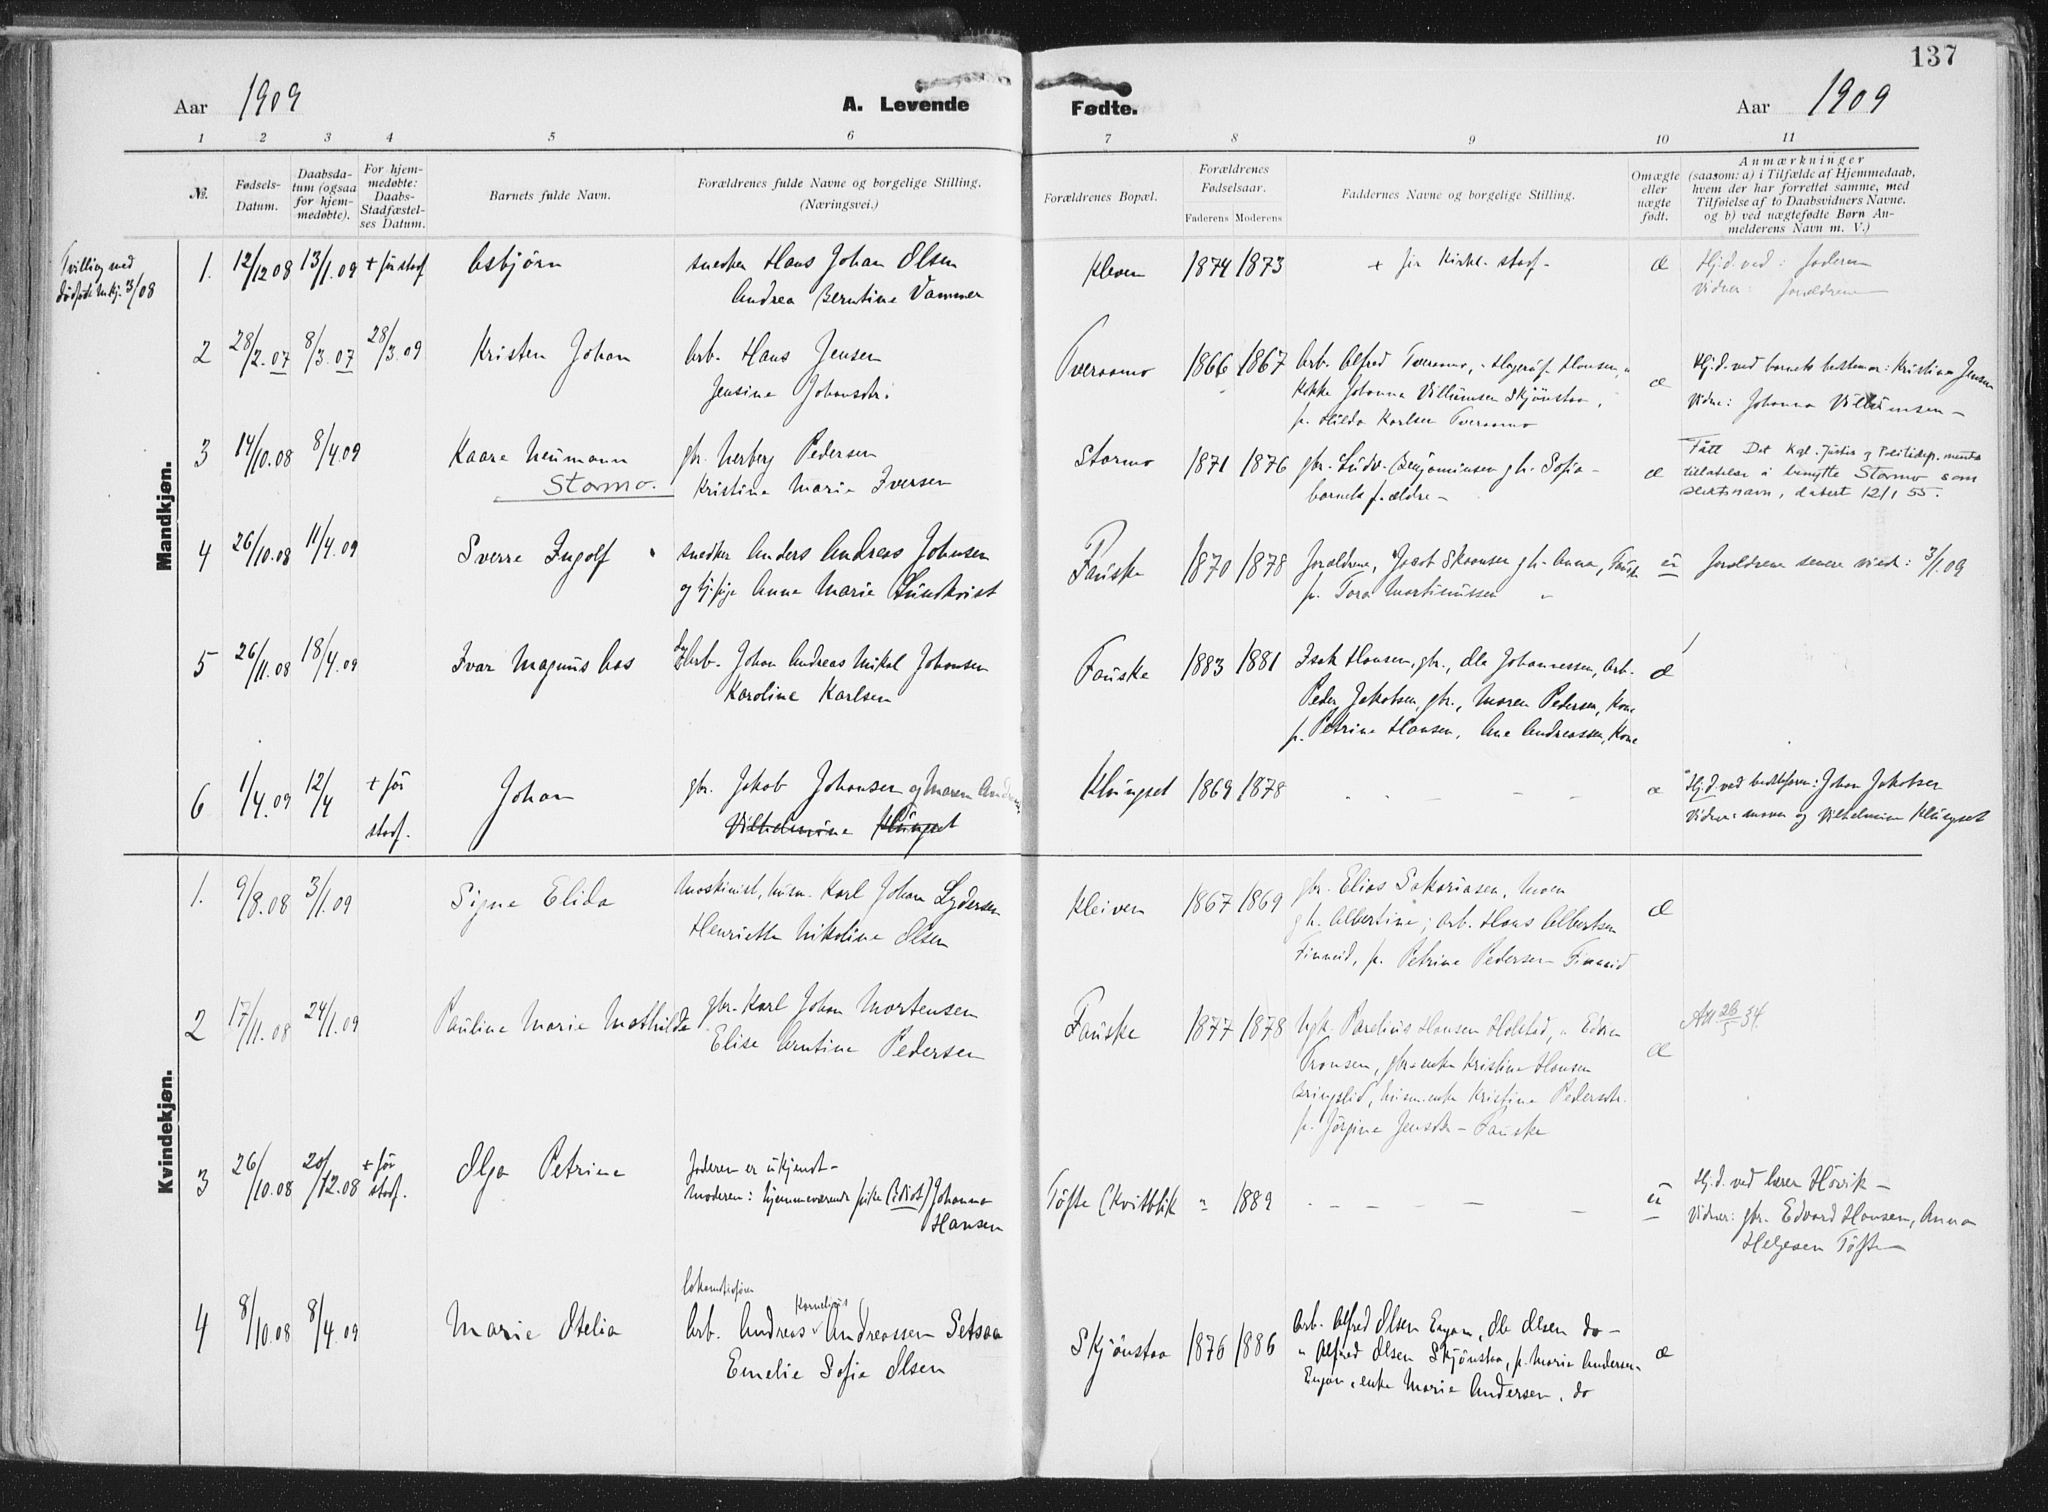 137
Aar 1909
A. Levende
Fødte.
Aar 1909
1 2 3 4 5 6 7 8 9 10 11
№.
Fødsels-
Datum.
Daabsda-
tum (ogsaa
for hjem-
medøbte).
For hjem-
medøbte:
Daabs-
Stadfæstel-
ses Datum.
Barnets fulde Navn.
Forældrenes fulde Navne og borgelige Stilling.
(Næringsvei.)
Forældrenes Bopæl.
Forældrenes
Fødselsaar.
Faderens Moderens
Faddernes Navne og borgelige Stilling.
Omægte
eller
uægte
født.
Anmærkninger
(saasom: a) i Tilfælde af Hjemmedaab,
hvem der har forrettet samme, med
Tilføielse af to Daabsvidners Navne.
og b) ved uægtefødte Børn An-
melderens Navn m. V.)
Mandkjøn.
Tvilling med
dødfødt mkj. 3/08
1. 12/12 08 13/1.09 + før stadf. Asbjørn
snedker Hans Johan Olsen
Andrea Berntine Vammer
Kleven 1874 1873
+ før kirkl. stadf.
æ
Hj.d. ved: faderen
Vidner: forældrene
2 28/2.07 8/3.07 28/3.09 Kristen Johan
Arb. Hans Jensen
Jensine Johansdtr.
Tveraamo 1866 1867
Arb. Alfred Tveraamo, Hansen, "
Kokke Johanna Villumsen Skjönstaa,
p. Hilda Karlsen Tveraamo
æ
Hj.d. ved barnets bestemor: Kristina Jensen
Vidne: Johanna Villumsen
3 14/10.08 8/4.09 Kaare Neumann
Stormo.
gbr. Herberg Pedersen
Kristine Marie Iversen
Stormo 1871 1876
gbr. Ludv. Benjaminsen gh. Sofie
barnets forældre
æ
Fått Det Kgl. Justis og Politidep. ments
tillatelse å benytte Stormo som
slektsnavn, datert 12/1 55.
4 26/10.08 11/4.09 Sverre Ingolf
snedker Anders Andreas Johnsen
og Anna Marie Lundkvist
Fauske 1870 1878
forældrene, Jacob Skaansen gh. Anna, Fauske
p. Tora Martinussen "
u
forældrene senere viet: 3/1.09
5 26/11.08 18/4.09 Ivar Magnus Aas
Arb. Johan Andreas Mikal Johansen
Karoline Karlsen
Fauske 1883 1881
Isak Hansen, gbr., Ole Johannessen, arb.
Peder Jakobsen, gbr., Maren Pedersen, Kone
p. Petrine Hansen, Ane Andreassen, Kone
æ
6 1/4.09 12/4 + før
stadf.
Johan
gbr. Jakob Johansen og Maren
Vilhelmine Klungset
Klungset 1869 1878
æ
Hj.d. ved bestefaren: Johan Jakobsen
Vidner: moren og Vilhelmine Klungset
Kvindekjøn.
1. 9/8.08 3/1.09 Signe Elida
Maskinist, husm. Karl Johan Lydersen
Henriette Nikoline Olsen
Kleiven 1867 1869
gbr. Elias Sakariasen, Moen
gh. Albertine; arb. Hans Albertsen
Finneid, p. Petrine Pedersen Finneid
æ
2 17/11.08 24/1.09 Pauline Marie Mathilde
gbr. Karl Johan Mortensen
Elise Arntine Pedersen
Fauske 1877 1878
Ugk. Parelius Hansen Holstad, " Edvin
Tronsen, gbr-enke Kristine Hansen
Bringslid, husm.enke Kristine Pedersdtr.
p. Jörgine Jensdtr. Fauske
æ
Att 26/5 34.
3 26/10.08 20/12.08 + før
stadf.
Olga Petrine
faderen er ukjendt
Moderen: hjemmeværende pike (Idiot) Johanna
Hansen
Töfte (Kvitblik " 1889
u
Hj.d. ved lærer Hövik
Vidner: gbr. Edvard Hansen, Anna
Helgesen Töfte
4 8/10.08 8/4.09 Marie Otelia
Lokomotivfører
Kornelius
Arb. Andreas Andreassen Setsaa
Emelie Sofie Olsen
Skjönstaa 1876 1886
Arb. Alfred Olsen Engan, Ole Olsen do
" Alfred Olsen Skjönstaa, p. Marie Andersen
Engan, enke Marie Andersen, do
æ